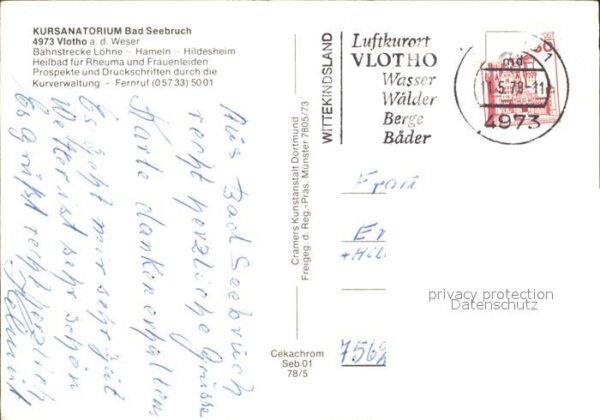 KURSANATORIUM Bad Seebruch
4973 Vlotho a. d. Weser
Bahnstrecke Löhne – Hameln – Hildesheim
Heilbad für Rheuma und Frauenleiden
Prospekte und Druckschriften durch die
Kurverwaltung – Fernruf (0 57 33) 50 01
Aus Bad Seebruch
recht herzliche Grüsse
Karte dankend erhalten
Es geht mir sehr gut
Wetter ist sehr schön
Es grüßt recht herzlich
Helmut
Cramers Kunstanstalt Dortmund
Freigeg. d. Reg.-Präs. Münster 7805/73
Cekachrom
Seb 01
78/5
WITTEKINDSLAND
Luftkurort
VLOTHO
Wasser
Wälder
Berge
Bäder
5.79-11
4973
Frau
7562
privacy protection
Datenschutz